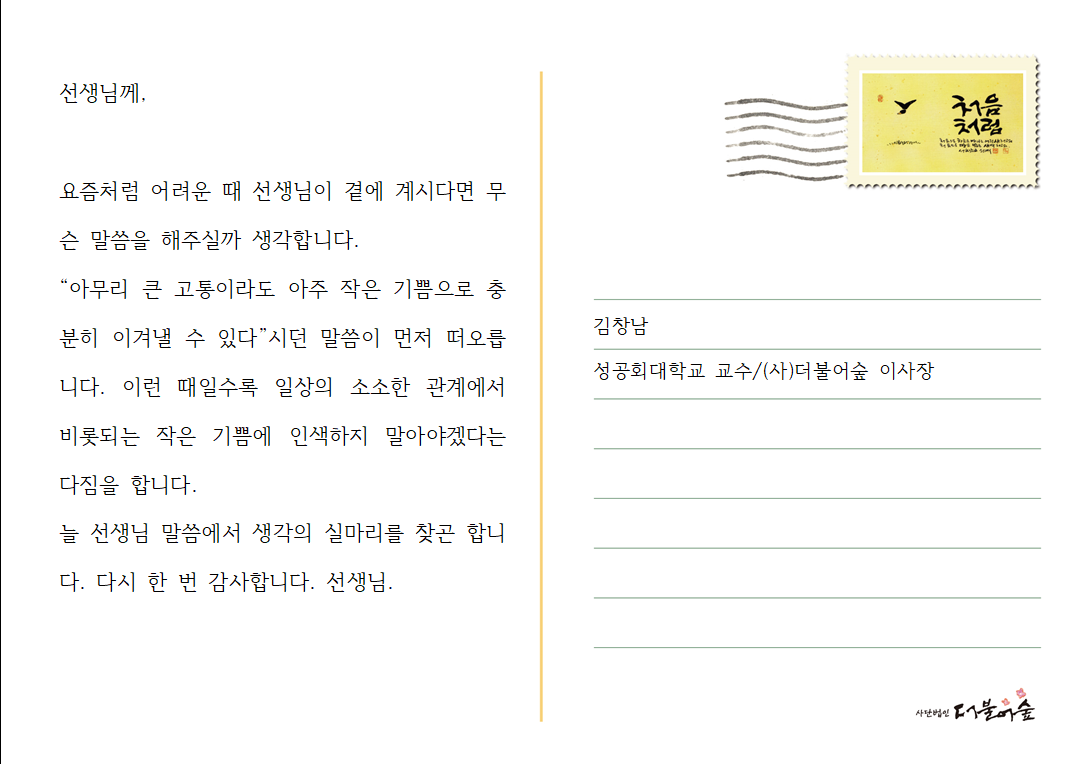 선생님께,
요즘처럼 어려운 때 선생님이 곁에 계시다면 무
슨 말씀을 해주실까 생각합니다.
“아무리 큰 고통이라도 아주 작은 기쁨으로 충
분히 이겨낼 수 있다”시던 말씀이 먼저 떠오릅
니다. 이런 때일수록 일상의 소소한 관계에서
비롯되는 작은 기쁨에 인색하지 말아야겠다는
다짐을 합니다.
늘 선생님 말씀에서 생각의 실마리를 찾곤 합니
다. 다시 한 번 감사합니다. 선생님.
처음
처럼
김창남
성공회대학교 교수/(사)더불어숲 이사장
사단법인 더불어숲